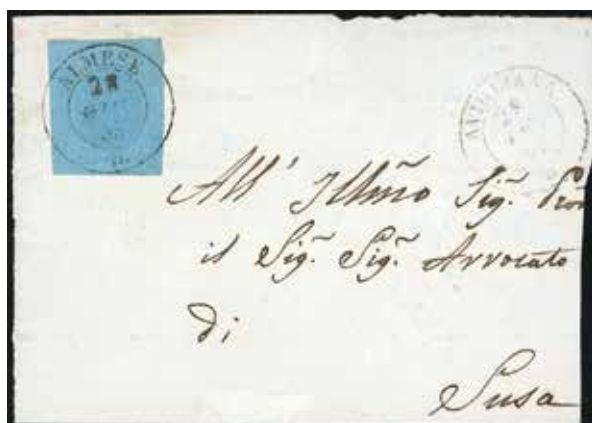 ALMESE
28
All' Illmo Sig.
il Sig. Sig. Avvocato
di
Susa